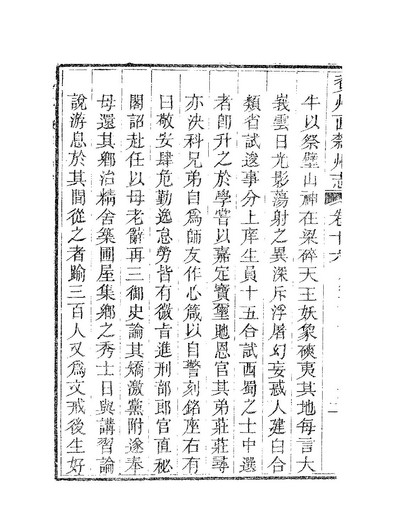 牛以祭壁山神在梁碎天王妖象磔夷其地每言大
峩雲日光影蕩射之異深斥浮屠幻妄惑人建白合
類省試逡事分上庠生員十五合試西蜀之士中選
者卽升之於學嘗以嘉定寶璽貤恩官其弟莊莊尋
亦決科兄弟自爲師友作心箴以自警刻銘座右有
曰敬安肆危勤逸怠勞皆有微旨進刑部郎官直秘
閣詔赴任以母老辭再三御史論其矯激黨附遂奉
母還其鄉治精舍築圃屋集鄉之秀士日與講習論
說游息於其閒從之者踰三百人又爲文戒後生好
州志
卷十六